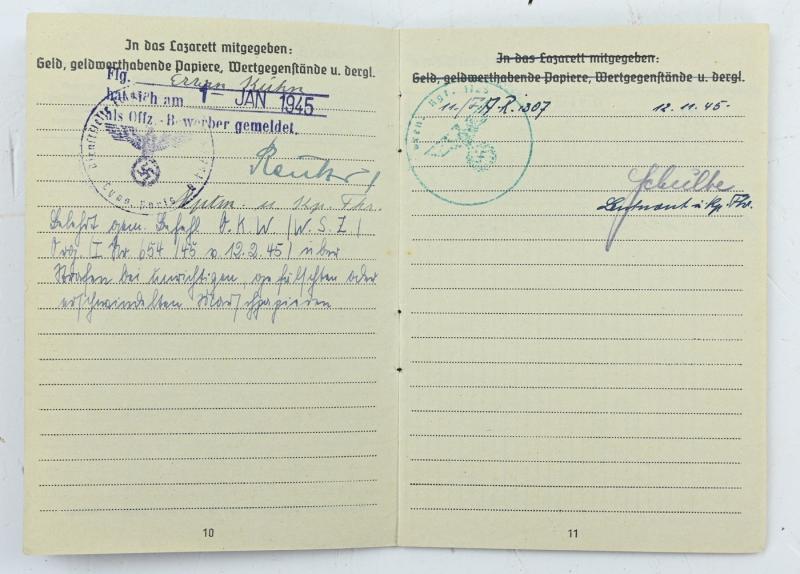 In das Lazarett mitgegeben:
Geld, geldwerthabende Papiere, Wertgegenstände u. dergl.
Flg. Erwin Kühn
hat sich am 1- JAN 1945
als Offz.-Bewerber gemeldet.
Hptm. u. Kp. Fhr.
Belehrt gem. Befehl O.K.W. (W.S.Z)
Org. I Nr 654/45 v. 12.2.45) über
Strafen bei unrichtigen, gefälschten oder
erschwindelten Marschpapieren
10
In das Lazarett mitgegeben:
Geld, geldwerthabende Papiere, Wertgegenstände u. dergl.
12.11.45-
Schulte
Leutnant u Kp. Fhr.
11